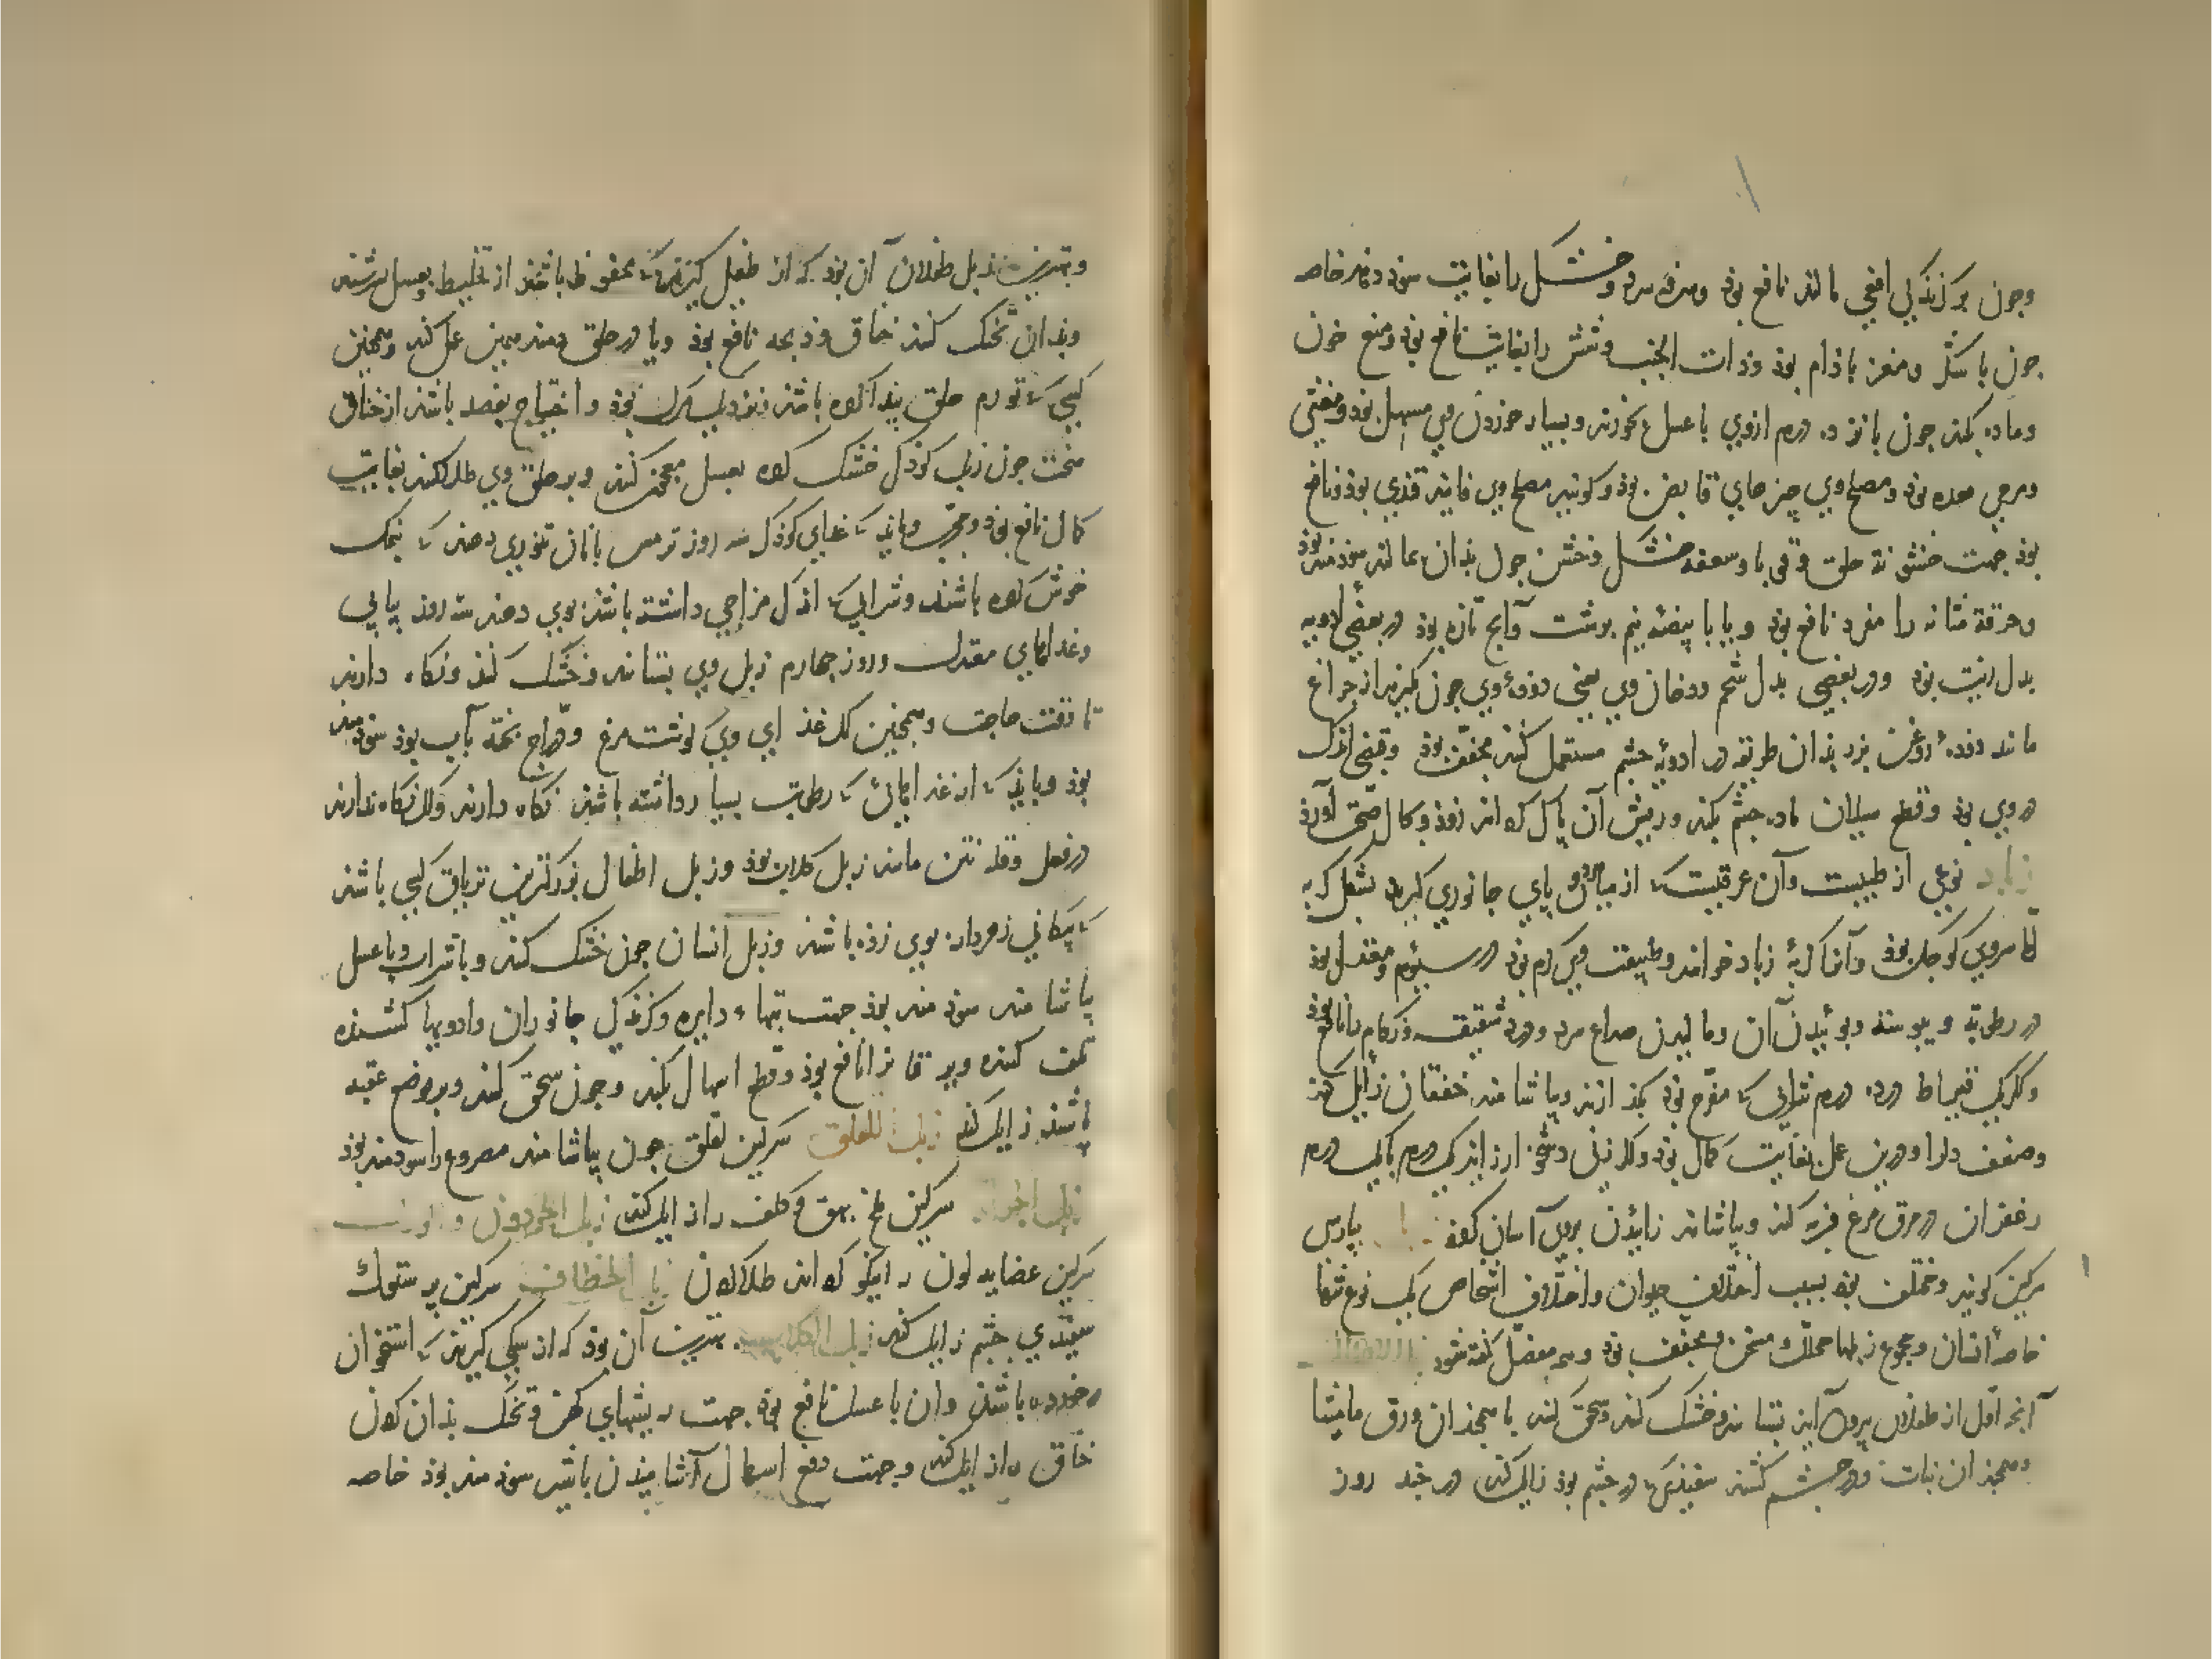 وجون بر کزندکی افعی مالند نافع بوذ وسرفه سرد وخشک را بغایت سوذ دهد خاصه
جون با شکر ومغز باذام بوذ وذات الجنب وشش را بغایت نافع بوذ ومنع خون
وماده بکند جون بانزده درم ازوی با عسل بخورند وبسیار خوردن وی مسهل بوذ ومغثی
ومرخی معده بوذ ومصلح وی چیزهای قابض بوذ وکویند مصلح وی فانید قندی بوذ ونافع
بوذ جهت خشونة حلق وقی با وسعفه خشک وخشن جون بذان بمالند سوذمند بوذ
وحرقة مثانه را مفرد نافع بوذ ویا با بیضه نیم برشت وآنج تازه بوذ در بعضی ادویه
بدل زیت بوذ ودر بعضی بدل شحم ودخان وی یعنی دوده وی جون بکیرند از چراغ
مانند دوده روغن بزر بذان طریقه در ادویه چشم مستعمل کنند مجفف بوذ وقبضی اندک
در وی بوذ وقطع سیلان ماده چشم بکند وریش آن پاک کرداند زوذ وکمال صحت آورد
زباد نوعی از طیبست وآن عرقیست که از میان دو پای جانوری کیرند بشکل کربه
اما سروی کوچک بوذ وآنرا کربه زباد خوانند وطبیعت وی کرم بوذ در سیوم ومعتدل بوذ
در رطوبة ویبوسة وبوئیدن آن ومالیدن صداع سرد ودرد شقیقه وزکام را نافع بوذ
واکر یک قیراط در ده درم شرابی که مفرح بوذ بکدازند وبیاشامند خفقان زایل کند
وضعف دل را ودرین عمل بغایت کمال بوذ واکر زنی دشخوار زاید یک درم با یک درم
زعفران در مرق مرغ فربه کنند وبیاشامد زائیدن بروی آسان کردد زبل پارسی
سرکین کویند ومختلف بوذ بسبب اختلاف حیوان واختلاف اشخاص یک نوع شها
خاصه انسان ومجموع زبلها محلل ومسخن ومجفف بوذ وهر مفصل کفته شود زبل الاطفال
آنجه اول از طفلان بیرون آید بستانند وخشک کنند وسحق کنند با همچندان ورق مامیثا
وهمجندان نبات ودر چشم کشند سفیذی که در چشم بوذ زایل کند در چند روز
وبهترین زبل طفلان آن بوذ که از طفلی کیرند که محفوظ باشد از تخلیط بعسل سرشته
وبذان تحنک کنند خناق وذبحه نافع بوذ ویا در حلق دمند همین عمل کند وهمجنین
کسی که تورم حلق پیدا کرده باشد نزدیک بمرک بوذ واحتیاج بفصد باشد از خناق
سخت جون زبل کوذکی خشک کرده بعسل معجون کنند وبر حلق وی طلا کنند بغایت
کمال نافع بوذ ومجرب وباید که غذای کوذک سه روز ترمس با نان تنوری دهند که بنمک
خوش کرده باشند وشرابی که اندک مزاجی داشته باشد بوی دهند سه روز پیاپی
وغذاهای معتدل وروز چهارم زبل وی بستانند وخشک کنند ونکاه دارند
تا وقت حاجت وهمجنین اکر غذای وی کوشت مرغ ودراج پخته باب بوذ سوذمند
بوذ وباید که از غذاهائی که رطوبت بسیار داشته باشد نکاه دارند واکر نکاه ندارند
در فعل وقلة نتن مانند زبل کلاب بوذ وزبل اطفال بزرکترین تریاق کسی باشد
که پیکانی زهردار بوی زده باشند وزبل انسان جون خشک کنند وبا شراب ویا عسل
بیاشامند سوذمند بوذ جهت تبهاء دایره وکزندکی جانوران وادویها کشنده
تلف کننده ویرقانرا نافع بوذ وقطع اسهال بکند وجون سحق کنند وبر موضع عقبه
باشند زایل کند زبل اللقلق سرکین لقلق جون بیاشامند مصروع را سودمند بوذ
زبل الجراد سرکین ملخ بهق وکلف را زایل کند زبل الحردون
سرکین عضایه لون را نیکو کرداند طلا کردن زبل الخطاف سرکین پرستوک
سپیذی چشم زایل کند زبل الکلاب بهترین آن بوذ که از سکی کیرند که استخوان
خورده باشد وآن با عسل نافع بوذ جهت ریشهای کهن وتحنک بذان کردن
خناق را زایل کند وجهت دفع اسهال آشامیذن با شیر سوذمند بوذ خاصه